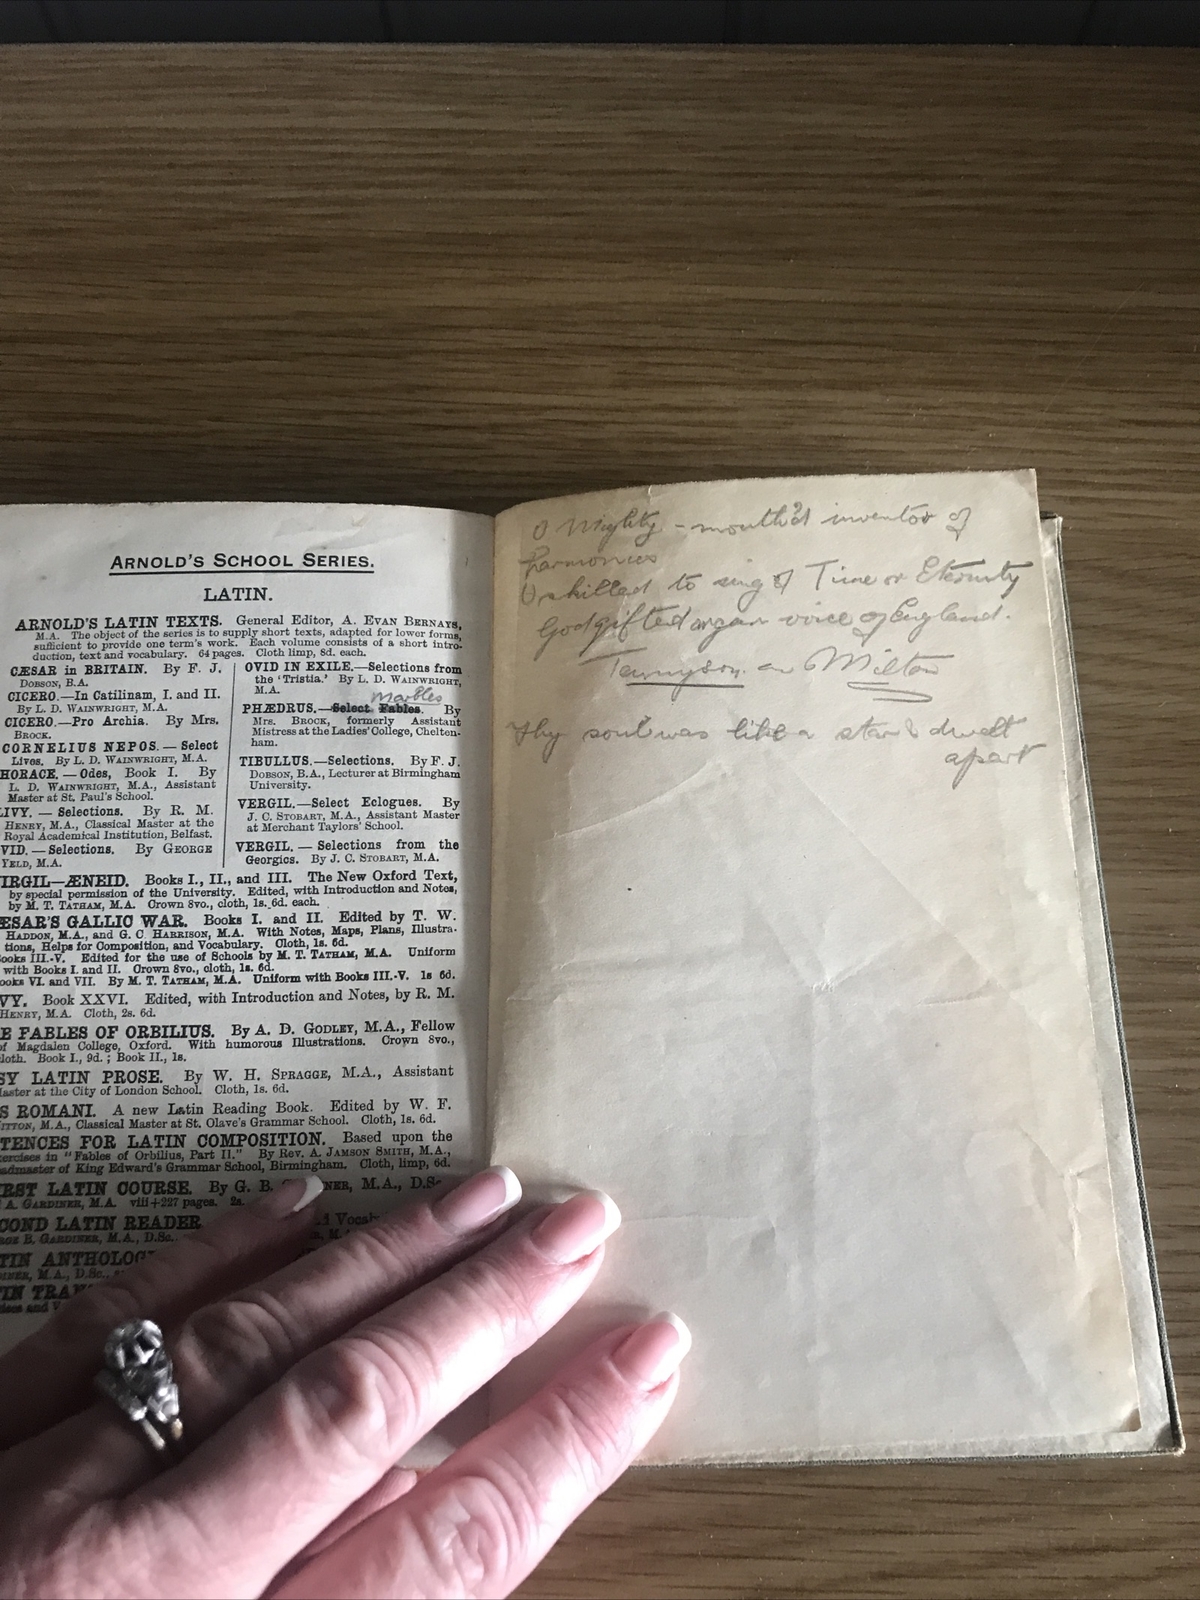 ARNOLD'S SCHOOL SERIES.
LATIN.
ARNOLD'S LATIN TEXTS. General Editor, A. EVAN BERNAYS,
M.A. The object of the series is to supply short texts, adapted for lower forms,
sufficient to provide one term's work. Each volume consists of a short intro-
duction, text and vocabulary. 64 pages. Cloth limp, 8d. each.
CÆSAR in BRITAIN. By F. J.
DOBSON, B.A.
CICERO.—In Catilinam, I. and II.
By L. D. WAINWRIGHT, M.A.
CICERO.—Pro Archia. By Mrs.
BROCK.
CORNELIUS NEPOS. — Select
Lives. By L. D. WAINWRIGHT, M.A.
HORACE. — Odes, Book I. By
L. D. WAINWRIGHT, M.A., Assistant
Master at St. Paul's School.
IVY. — Selections. By R. M.
HENRY, M.A., Classical Master at the
Royal Academical Institution, Belfast.
VID. — Selections. By GEORGE
YELD, M.A.
OVID IN EXILE.—Selections from
the 'Tristia.' By L. D. WAINWRIGHT,
M.A.
marbles
PHÆDRUS.—Select Fables. By
Mrs. BROCK, formerly Assistant
Mistress at the Ladies' College, Chelten-
ham.
TIBULLUS.—Selections. By F. J.
DOBSON, B.A., Lecturer at Birmingham
University.
VERGIL.—Select Eclogues. By
J. C. STOBART, M.A., Assistant Master
at Merchant Taylors' School.
VERGIL. — Selections from the
Georgics. By J. C. STOBART, M.A.
IRGIL—ÆNEID. Books I., II., and III. The New Oxford Text,
by special permission of the University. Edited, with Introduction and Notes,
by M. T. TATHAM, M.A. Crown 8vo., cloth, 1s. 6d. each.
ÆSAR'S GALLIC WAR. Books I. and II. Edited by T. W.
HADDON, M.A., and G. C. HARRISON, M.A. With Notes, Maps, Plans, Illustra-
tions, Helps for Composition, and Vocabulary. Cloth, 1s. 6d.
ooks III.-V. Edited for the use of Schools by M. T. TATHAM, M.A. Uniform
with Books I. and II. Crown 8vo., cloth, 1s. 6d.
ooks VI. and VII. By M. T. TATHAM, M.A. Uniform with Books III.-V. 1s 6d.
VY. Book XXVI. Edited, with Introduction and Notes, by R. M.
HENRY, M.A. Cloth, 2s. 6d.
E FABLES OF ORBILIUS. By A. D. GODLEY, M.A., Fellow
of Magdalen College, Oxford. With humorous Illustrations. Crown 8vo.,
cloth. Book I., 9d. ; Book II., 1s.
SY LATIN PROSE. By W. H. SPRAGGE, M.A., Assistant
Master at the City of London School. Cloth, 1s. 6d.
S ROMANI. A new Latin Reading Book. Edited by W. F.
ITTON, M.A., Classical Master at St. Olave's Grammar School. Cloth, 1s. 6d.
TENCES FOR LATIN COMPOSITION. Based upon the
ercises in "Fables of Orbilius, Part II." By Rev. A. JAMSON SMITH, M.A.,
admaster of King Edward's Grammar School, Birmingham. Cloth, limp, 6d.
RST LATIN COURSE. By G. B. NER, M.A., D.Sc
A. GARDINER, M.A. viii+227 pages. 2s.
COND LATIN READER Vocab
RGE B. GARDINER, M.A., D.Sc.
TIN ANTHOLOG
DINER, M.A., D.Sc.,
TIN TRA
O Mighty-mouth'd inventor of
harmonies
O skilled to sing of Time or Eternity
God gifted organ voice of England.
Tennyson on Milton
Thy soul was like a star & dwelt
apart